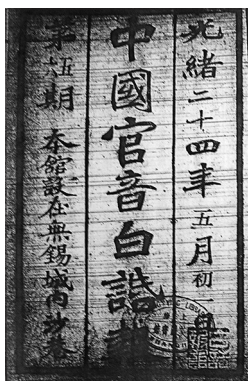 光緒二十四年五月初一日
中國官音白話報
第五六期 本舘設在無錫城内沙巷